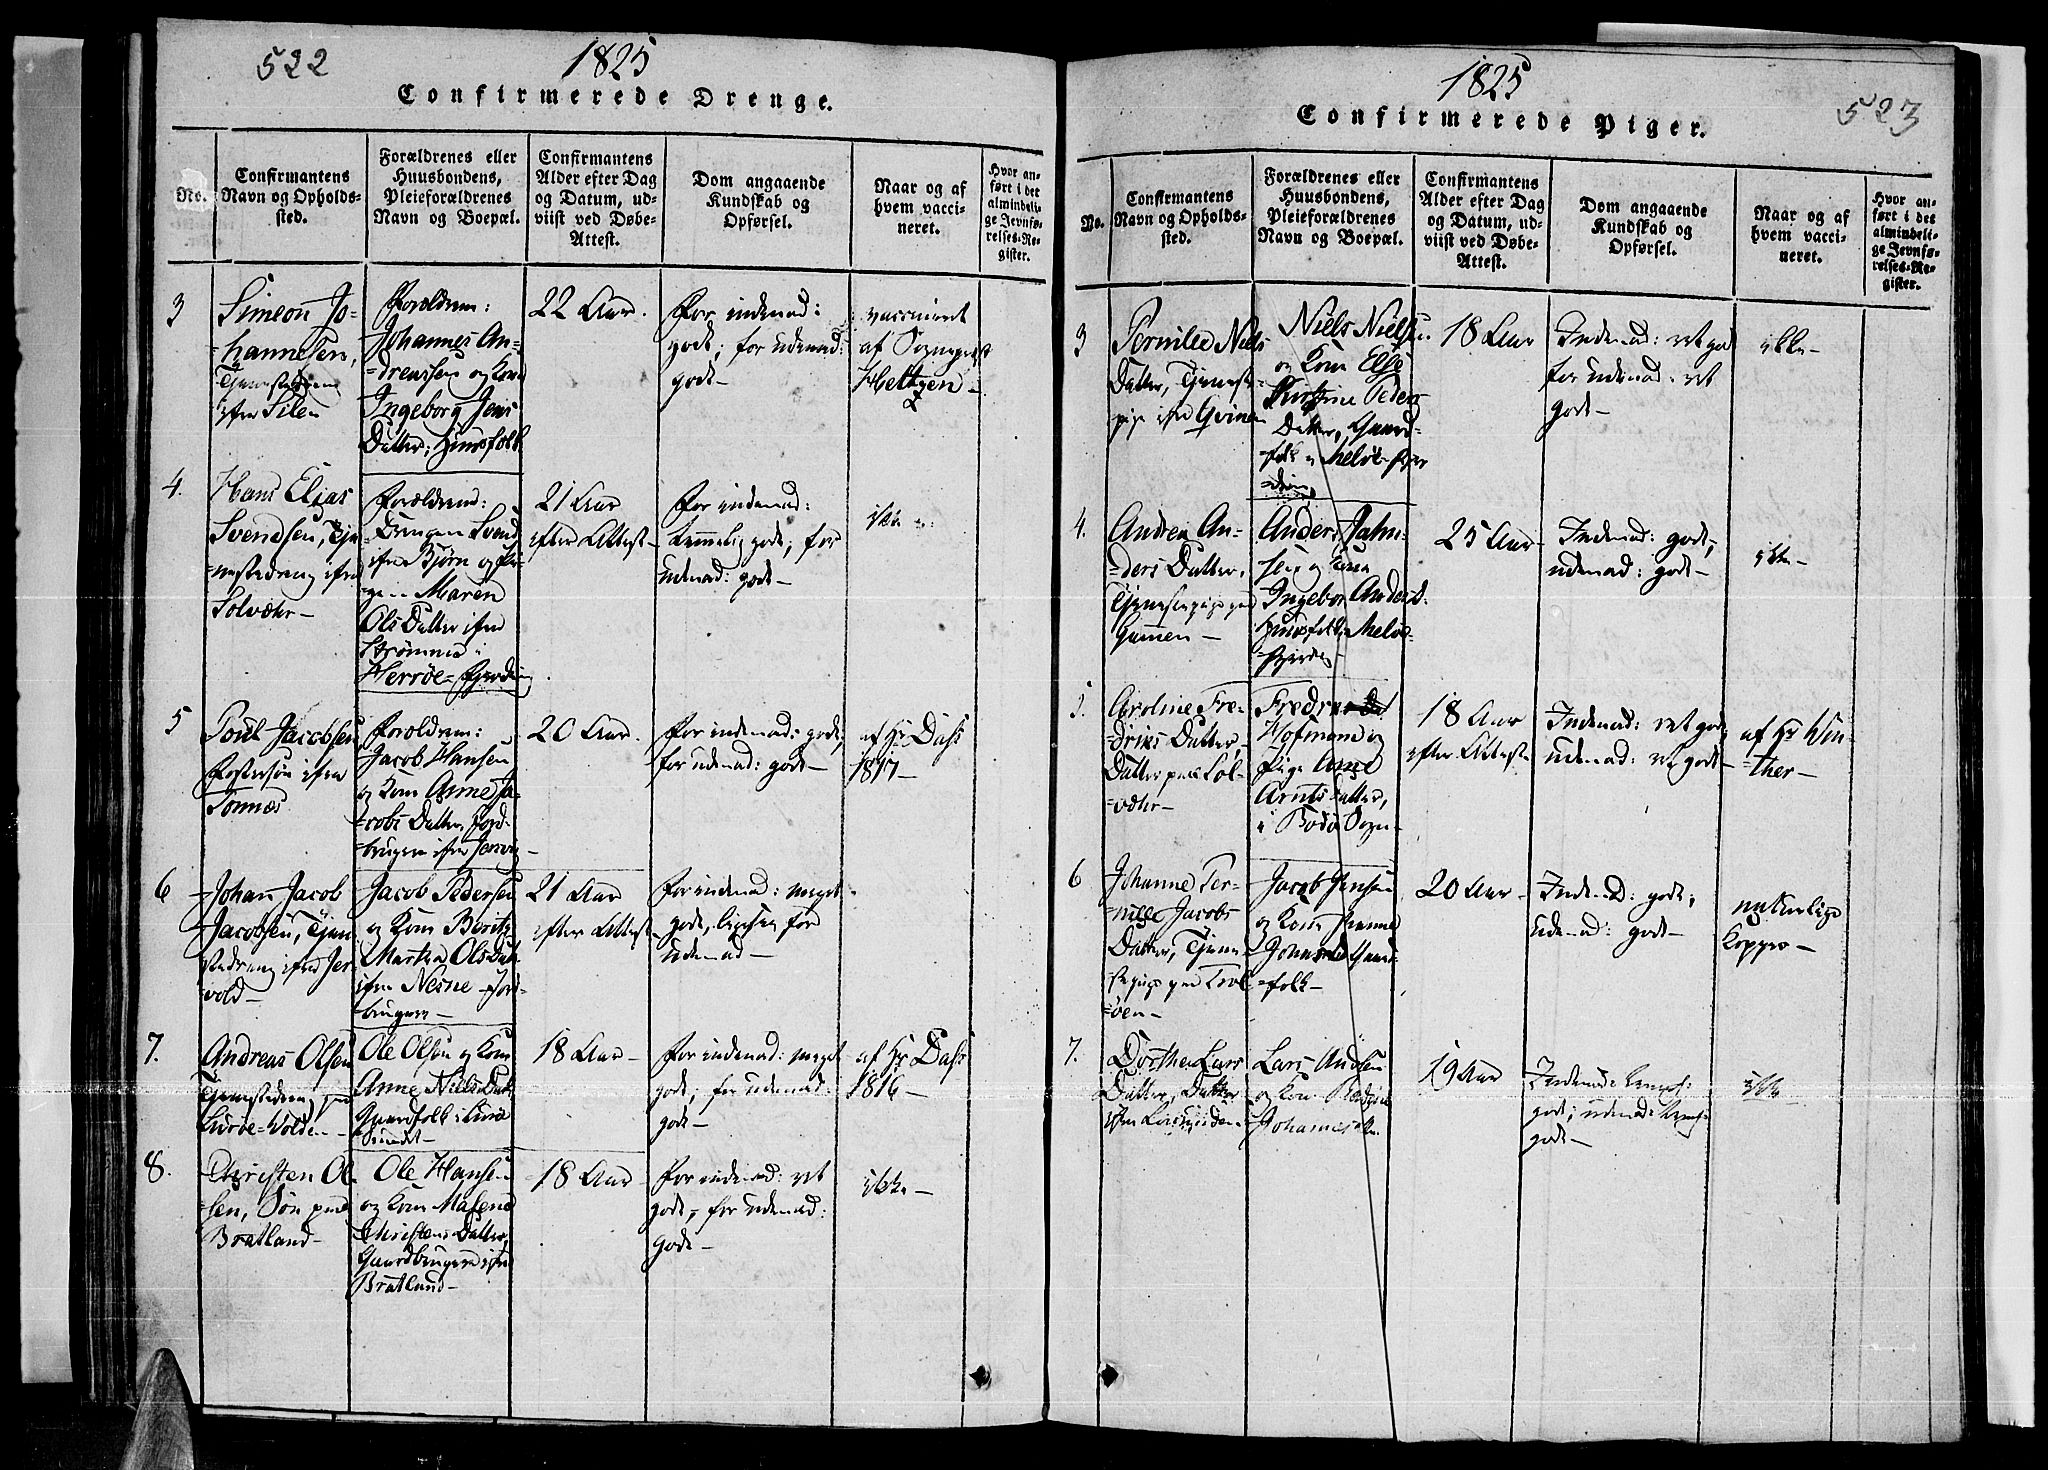 522
1825
Confirmerede Drenge.
No.
Confirmantens
Navn og Opholds-
sted.
Forældrenes eller
Huusbondens,
Pleieforældrenes
Navn og Boepæl.
Confirmantens
Alder efter Dag
og Datum, ud-
viist ved Døbe-
Attest.
Dom angaaende
Kundskab og
Opførsel.
Naar og af
hvem vacci-
neret.
Hvor an-
ført i det
almindeli-
ge Jevnfø-
relses-Re-
gister.
3
Simeon Jo-
hannesen,
ifra Silen
Forældrene:
Johannes An-
dreassen og Kone
Ingeborg Jens
Datter, Huusfolk
22 Aar.
For indenad:
godt; for udenad:
godt-
vaccineret
af Sogneprest
Heltzen-
4.
Hans Elias
Svendsen, Tjen-
nestedreng ifra
Solvær-
Forældrene:
Drengen Svend
ifra Bjørn og Pi-
gen Maren
Ols Datter ifra
Strømmen i
Herrøe-Fjerding
21 Aar
efter Attest-
For indenad:
temmelig godt; for
udenad: godt-
ikke
5
Poul Jacobsen
Fostersøn ifra
Tonnæs
Forældrene:
Jacob Hansen
og Kone Anne Ja-
cobs Datter, Jord-
brugere ifra
20 Aar.
For indenad: godt;
for udenad: godt-
af Hr Dass
1817-
6
Johan Jacob
Jacobsen, Tjen-
stedreng ifra Jer-
vold-
Jacob Pedersen
og Kone Berith
Martha Ols Dat:
ifra Nesne Jord-
brugere-
21 Aar
efter Attest
For indenad: meget
godt, ligesaa for
udenad-
7.
Andreas Olsen
Tjenestedreng paa
Lurøe-Volden-
Ole Olsen og Kone
Anne Niels Dat:
Gaardfolk i
Sundet-
18 Aar-
For indenad: meget
godt; for udenad:
godt-
af Hr Dass
1816-
8.
Christen Ol-
sen, Søn paa
Bratland-
Ole Hansen
og Kone Masena
Christens Datter,
Gaardbrugere ifra
Bratland-
18 Aar-
For indenad: ret
godt, for udenad:
godt-
ikke-
1825
Confirmerede Piger.
523
No.
Confirmantens
Navn og Opholds-
sted.
Forældrenes eller
Huusbondens,
Pleieforældrenes
Navn og Boepæl.
Confirmantens
Alder efter Dag
og Datum, ud-
viist ved Døbe-
Attest.
Dom angaaende
Kundskab og
Opførsel.
Naar og af
hvem vacci-
neret.
Hvor an-
ført i det
almindeli-
ge Jevnfø-
relses-Re-
gister.
3
Pernille Niels
Datter, Tjeneste-
pige ifra
Niels Nielsen
og Kone Else
Kirstine Peders
Datter, Gaard-
folk i Meløe-Fjer-
ding,
18 Aar
Indenad: ret godt
for udenad: ret
godt-
ikke-
4.
Andrea An-
ders Datter,
Tjenestepige paa
Anders
sen og Kone
Ingebor Anders D.
Huusfolk i Meløe-
Fjerding-
25 Aar-
Indenad: godt,
udenad: godt-
ikke-
5.
Caroline Fre-
driks Datter,
Datter paa Sol-
vær-
Fredrik
Hofmand og
Pige Anne
Arnts Datter,
i Bodø Sogn-
18 Aar
efter Attest-
Indenad: ret godt,
udenad: ret godt-
af Hr Win-
ther-
6
Johanne Per-
nille Jacobs
Datter, Tjene-
stepige paa
øen-
Jacob Jensen
og Kone
Gaard-
folk-
20 Aar-
Indenad: godt;
udenad: godt-
naturlige
Kopper-
7.
Dorthea Lars
Datter, Datter
ifra
Lars
og Kone
19 Aar
Indenad:
godt; udenad:
godt-
ikke-